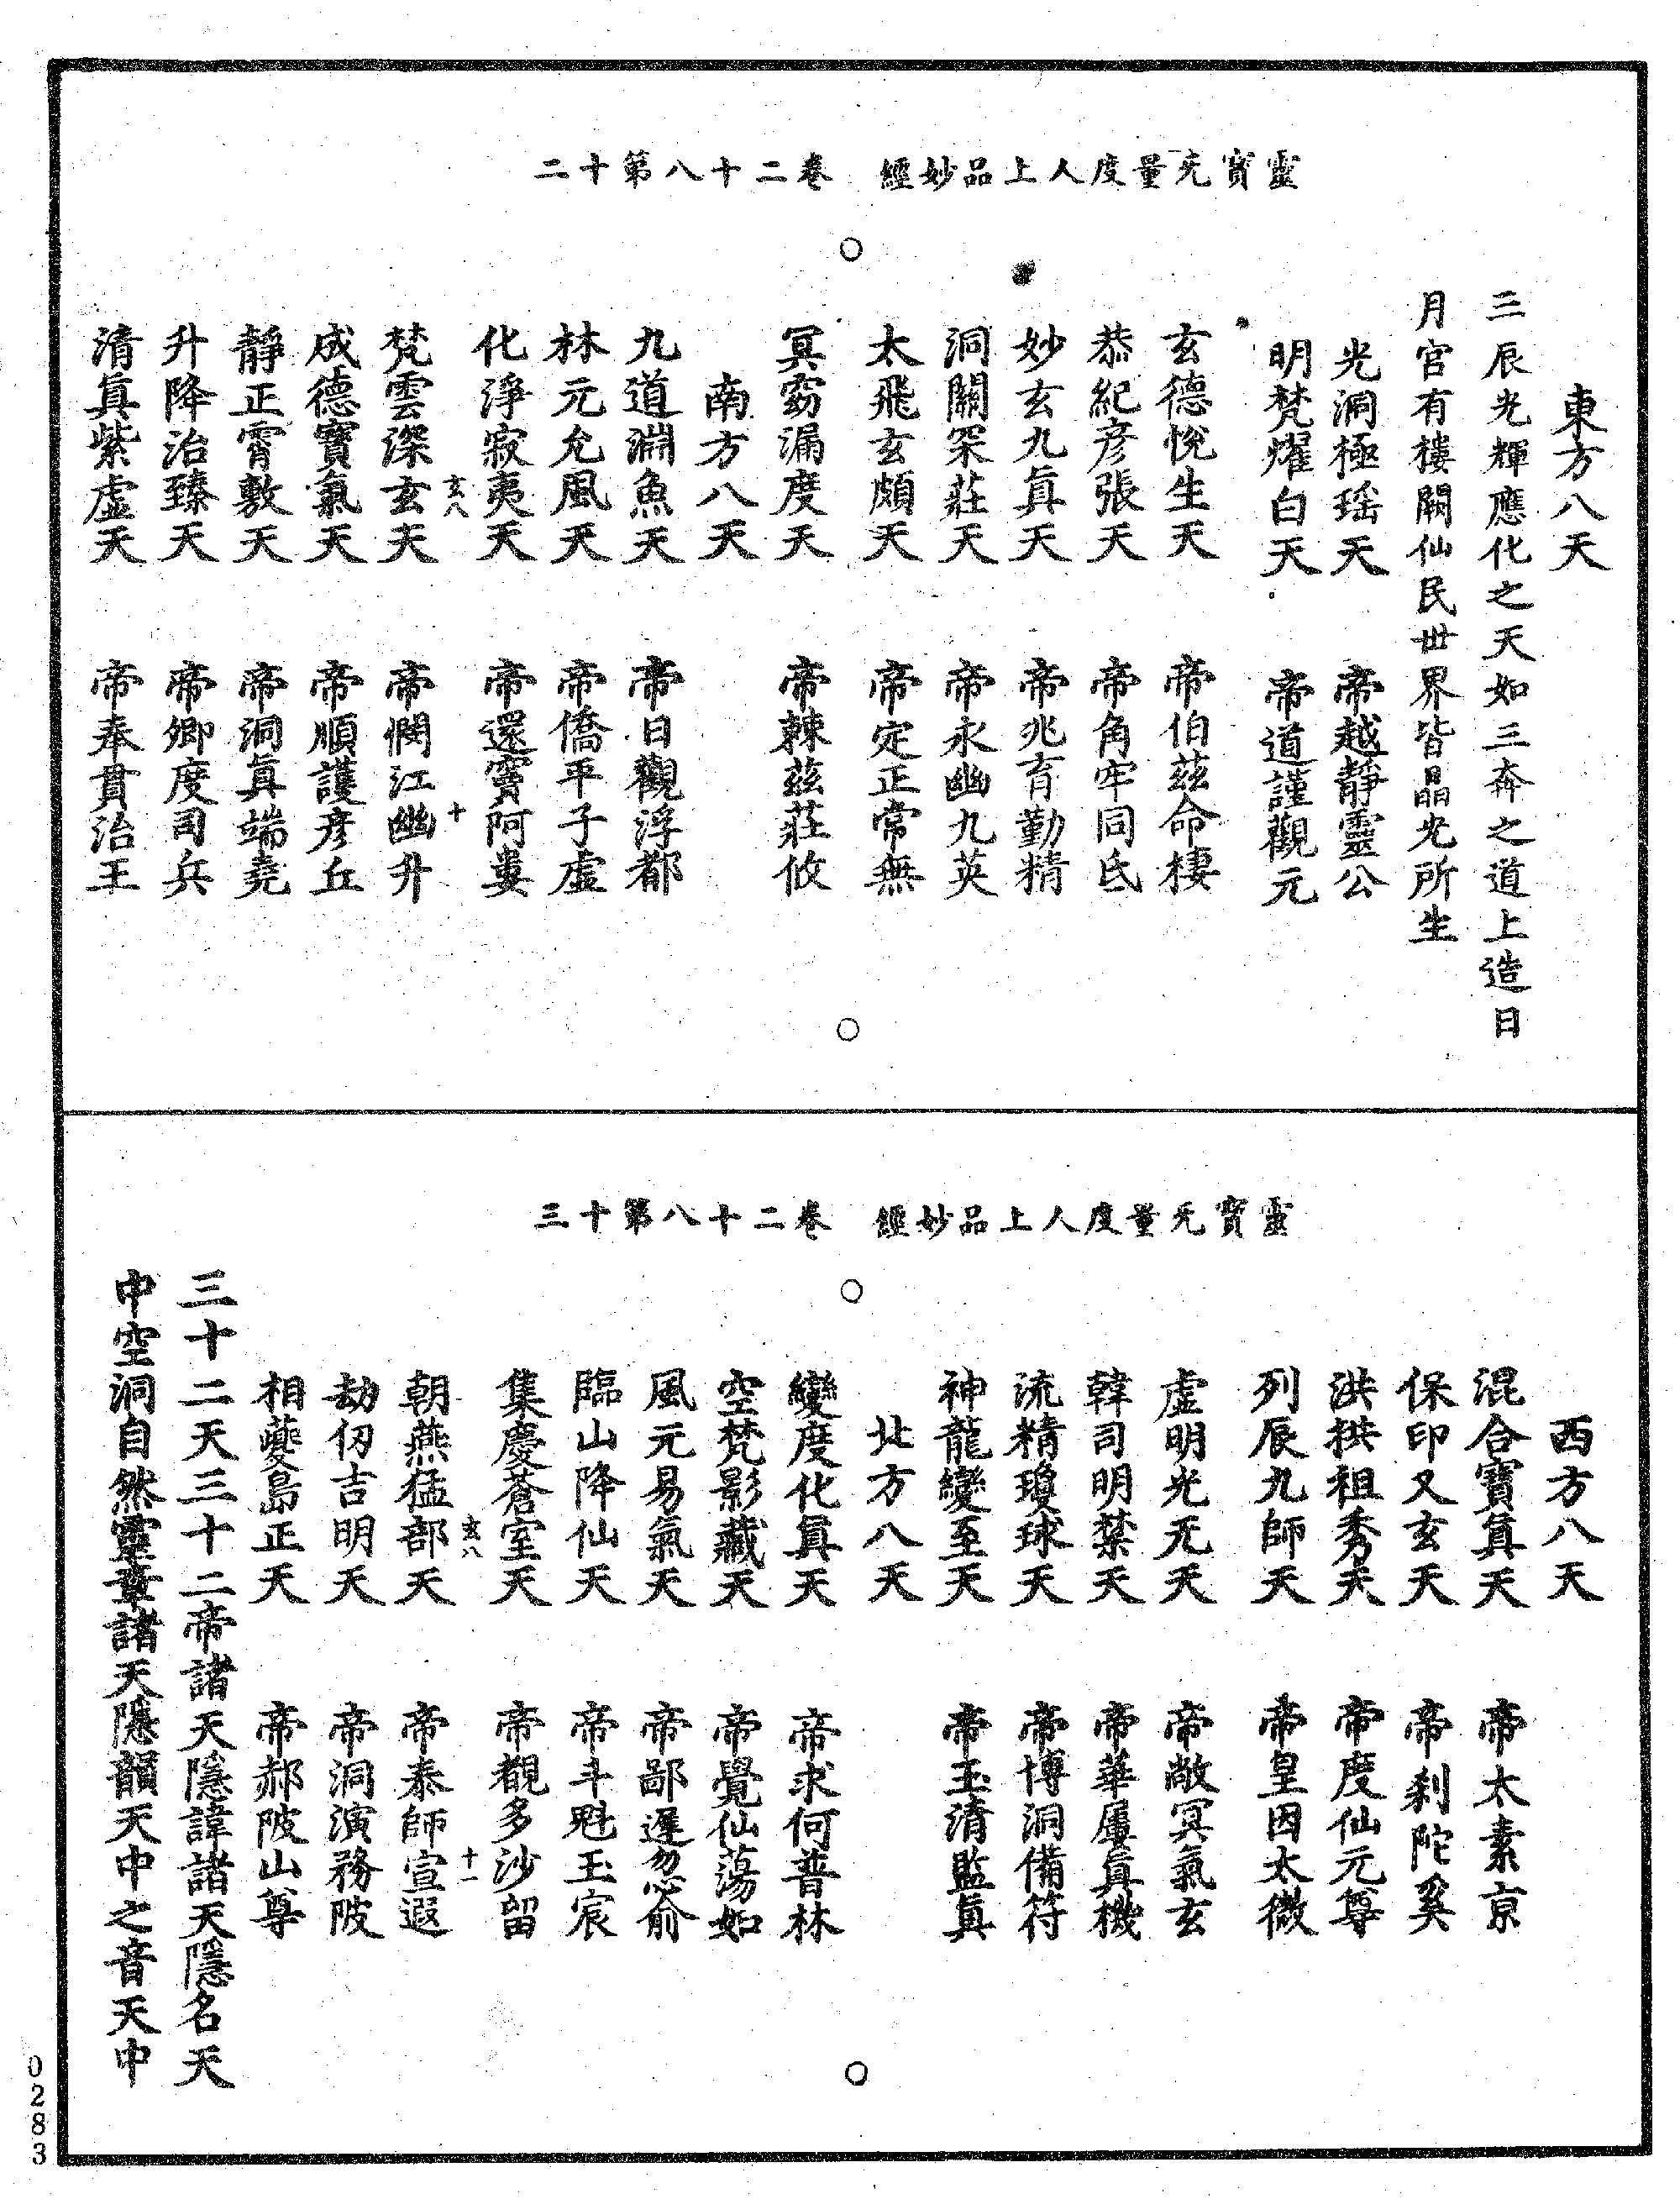 靈寳无量度人上品妙經　卷二十八第十二
東方八天
三辰光輝應化之天如三奔之道上造日
月官有樓闕仙民世界皆晶光所生
光洞極瑶天　帝越靜靈公
明梵燿白天　帝道謹觀元
玄德悅生天　帝伯茲命棲
恭紀彦張天　帝角牢同氐
妙玄九真天　帝兆育勤精
洞關罙莊天　帝永幽九英
太飛玄頗天　帝定正常無
冥窈漏度天　帝棘茲莊攸
南方八天
九道淵魚天　帝日觀浮都
林元允風天　帝僑平子虛
化淨寂夷天　帝還寳阿婁
玄八　十
梵雲深玄天　帝憫江幽升
成德寳氣天　帝順護彦丘
靜正霄敷天　帝洞真端堯
升降治臻天　帝卿度司兵
清真紫虛天　帝奉貫治王
靈寳无量度人上品妙經　卷二十八第十三
西方八天
混合寳真天　帝太素京
保印又玄天　帝刹陀奚
洪拱祖秀天　帝度仙元尊
列辰九師天　帝皇因太微
虛明光无天　帝敞冥氣玄
韓司明禁天　帝華屢真機
流精瓊球天　帝博洞備符
神龍變至天　帝玉清監真
北方八天
變度化真天　帝求何普林
空梵影藏天　帝覺仙蕩如
風元易氣天　帝鄙遲忽俞
臨山降仙天　帝斗魁玉宸
集慶蒼室天　帝覩多沙留
玄八　十一
朝燕猛部天　帝泰師宣遐
劫仞吉明天　帝洞演務陂
相夔島正天　帝郝陂山尊
三十二天三十二帝諸天隱諱諸天隱名天
中空洞自然靈章諸天隱韻天中之音天中
0283